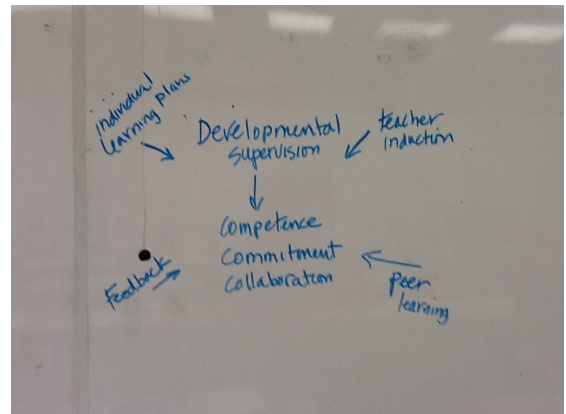 individual
learning plans
Developmental
supervision
teacher
induction
competence
commitment
collaboration
Feedback
peer
learning